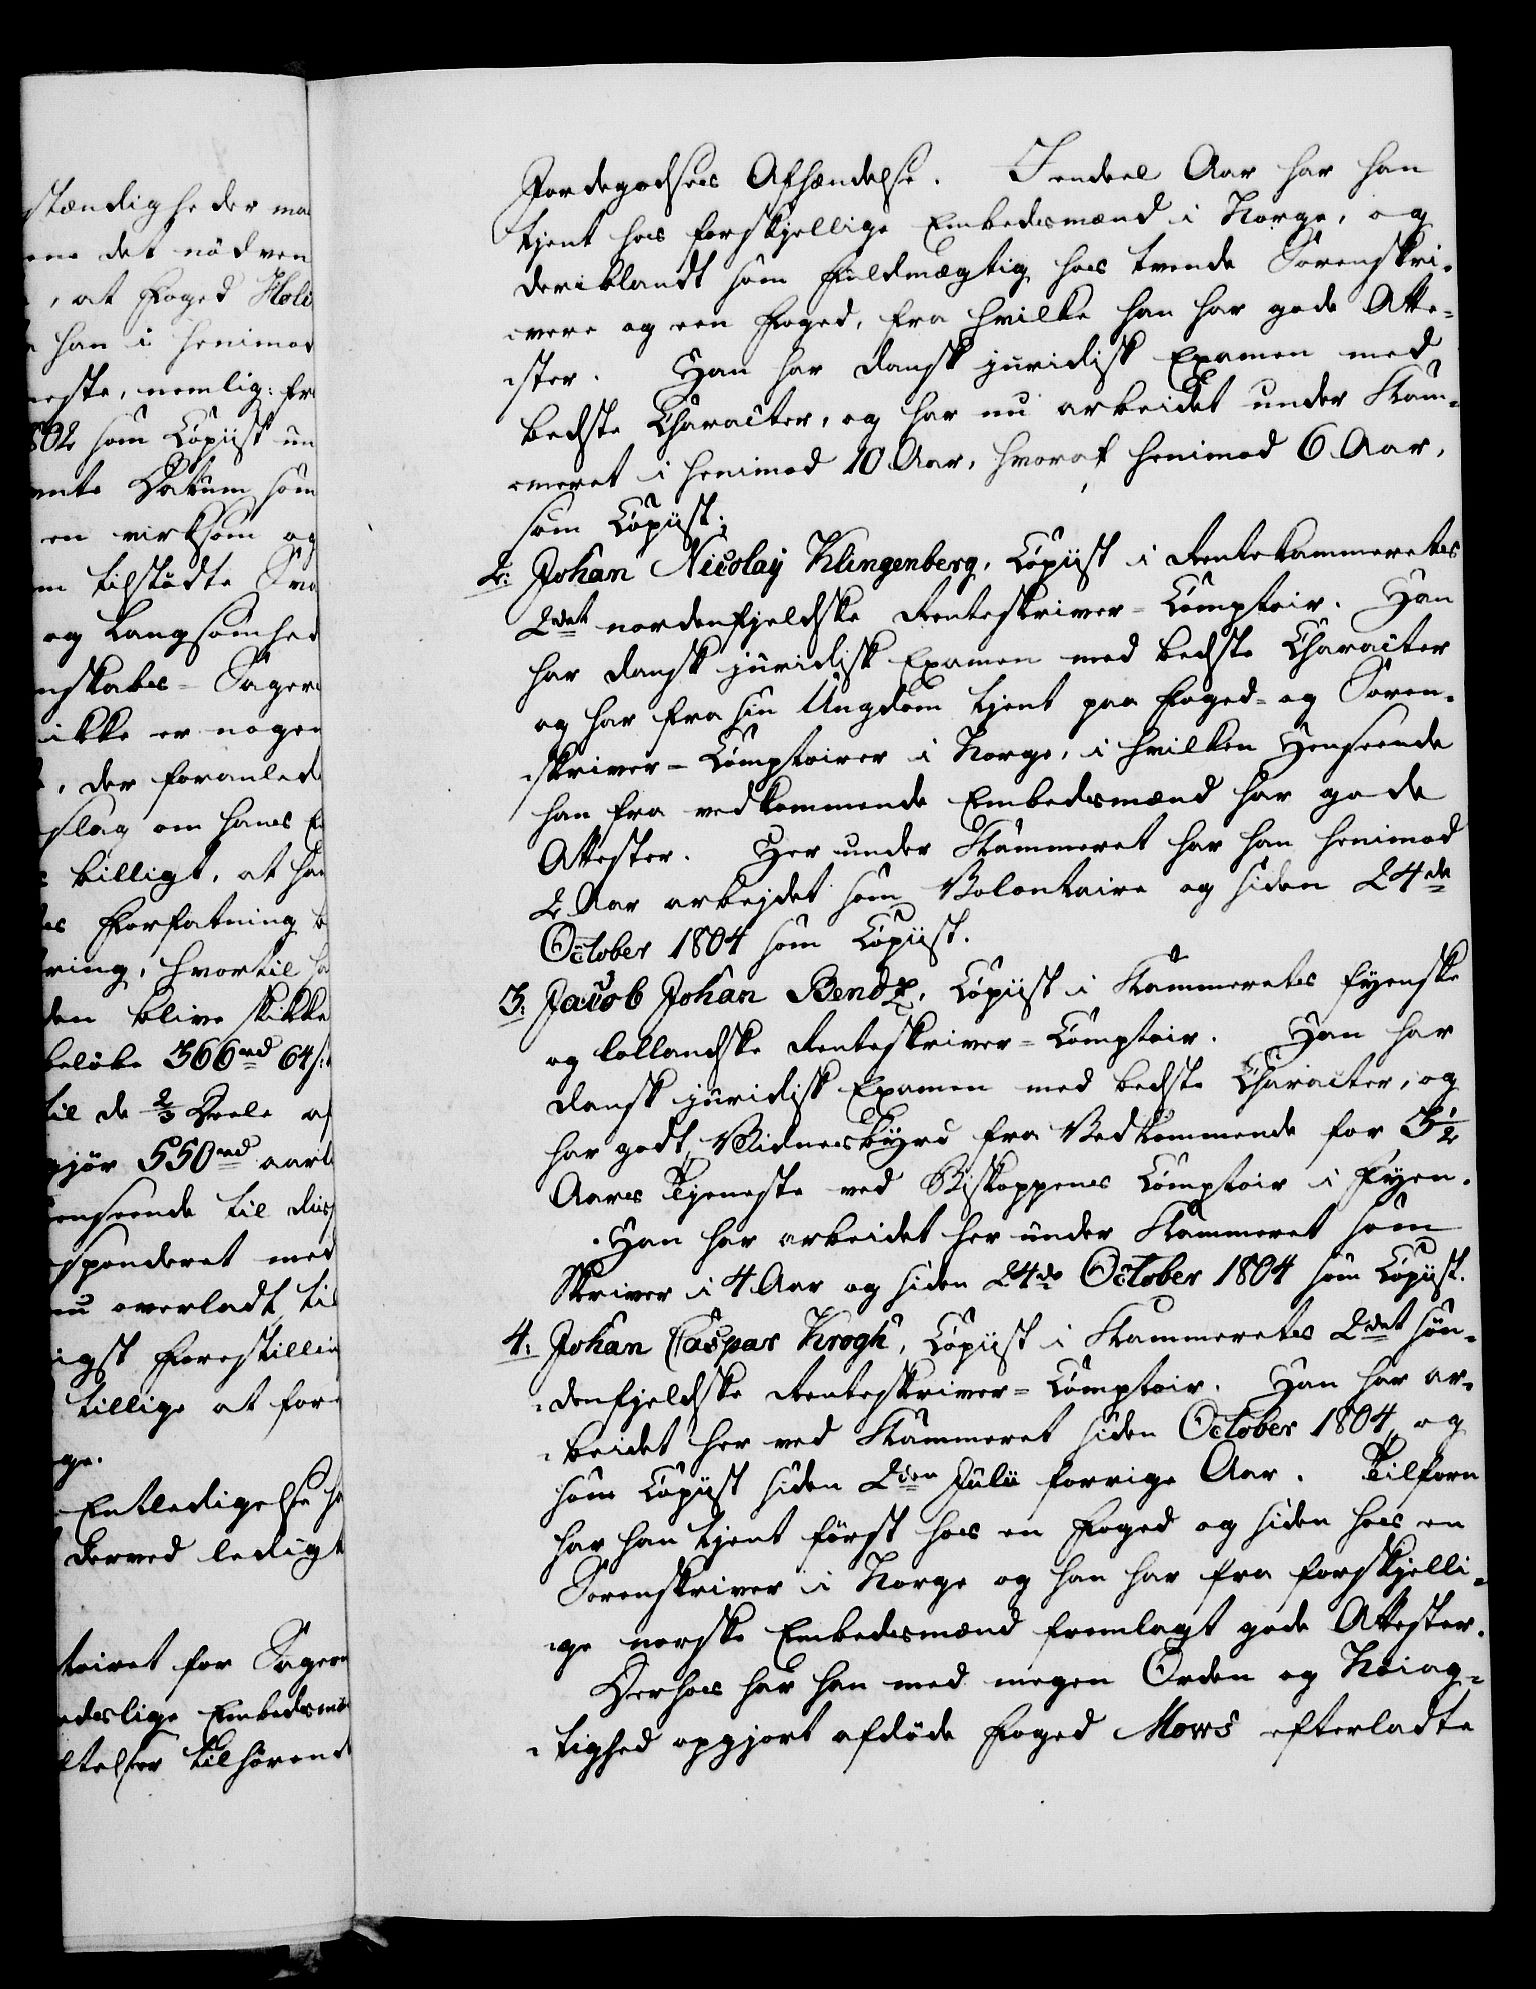 stændigheder ma
ene det nödven
, at Foged Hol
han i henimod
neste, nemlig: fr
802 som Copiist un
mte Datum som
en virksom og
m tilstödte Sva
og Langsomhed
nskabs-Sager
ikke er nogen
, der foranled
slag om hans E
billigt, at han
s Forfatning
ring, hvortil ha
den blive skikke
belöbe 366 rd 64 s:
til de 2/3 Deele af
gjör 550 rd aarl
enseende til dis
sponderet med
nu overladt til
igst Forestilling
tillige at for
ge.
Entledigelse ha
derved ledigt
toiret for Sager
edslige Embedsmæ
ftelser tilhörend
Jordegodsets Afhændelse. Jendeel Aar har han
tjent hos forskjellige Embedsmænd i Norge, og
deriblandt som Fuldmægtig hos tvende Sorenskri-
vere og een Foged, fra hvilke han har gode Atte-
ster. Han har dansk juridisk Examen med
bedste Character, og har nu arbeidet under Kam-
meret i henimod 10 Aar, hvoraf henimod 6 Aar,
som Copiist;
2: Johan Nicolay Klingenberg, Copiist i Rentekammerets
2det nordenfjeldske Renteskriver-Comptoir. Han
har dansk juridisk Examen med bedste Character
og har fra sin Ungdom tjent paa Foged- og Soren-
skriver-Comptoirer i Norge, i hvilken Henseende
han fra vedkommende Embedsmænd har gode
Attester. Her under Kammeret har han henimod
2 Aar arbejdet som Volontaire og siden 24de
October 1804 som Copiist.
3: Jacob Johan Bendz, Copiist i Kammerets fyenske
og lollandske Renteskriver-Comptoir. Han har
dansk juridisk Examen med bedste Character, og
har godt Vidnesbyrd fra Vedkommende for 3 1/2
Aars Tjeneste ved Biskoppens Comptoir i Fyen.
Han har arbeidet her under Kammeret som
Skriver i 4 Aar og siden 24de October 1804 som Copiist.
4: Johan Caspar Krogh, Copiist i Kammerets 2det sön-
denfjeldske Renteskriver-Comptoir. Han har ar-
beidet her ved Kammeret siden October 1804, og
som Copiist siden 2den Julii forrige Aar. Tilforn
har han tjent först hos en Foged og siden hos en
Sorenskriver i Norge og han har fra forskjelli-
ge norske Embedsmænd fremlagt gode Attester.
Derhos har han med megen Orden og Nöiag-
tighed opgjort afdöde Foged Mows efterladte